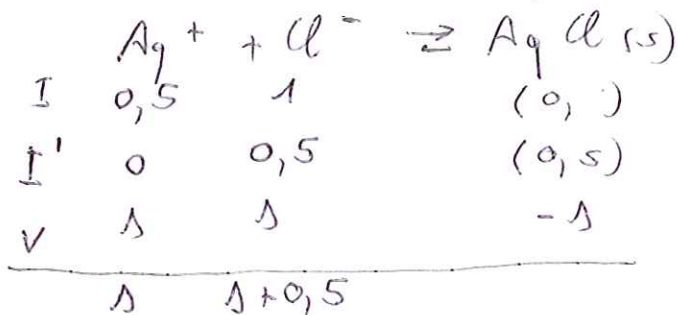 Ag⁺ + Cl⁻ ⇌ AgCl (s)
I 0,5 1 (0, )
I' 0 0,5 (0,5)
V s s -s
s s+0,5